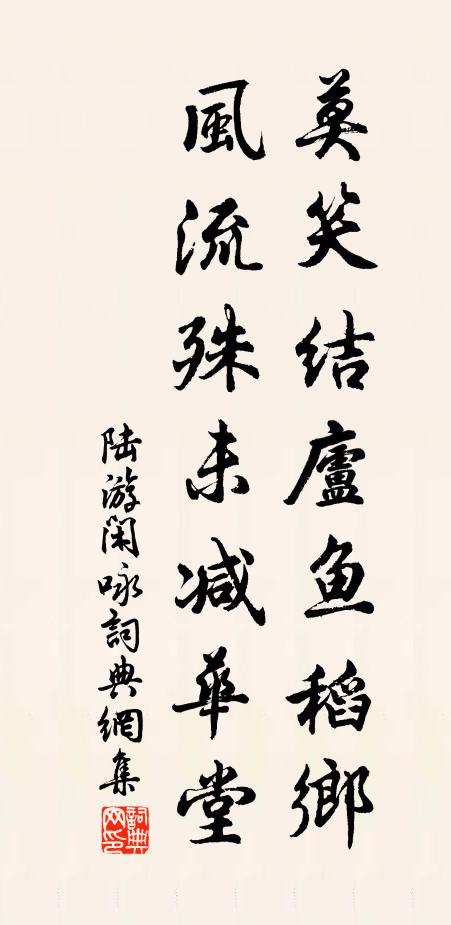 莫笑结廬鱼稻鄉
風流殊未减華堂
陆游闲咏詞典網集
詞典网印